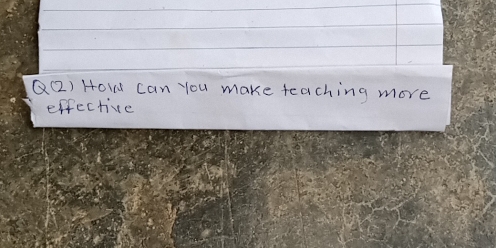 Q(2) How can you make teaching more
effective